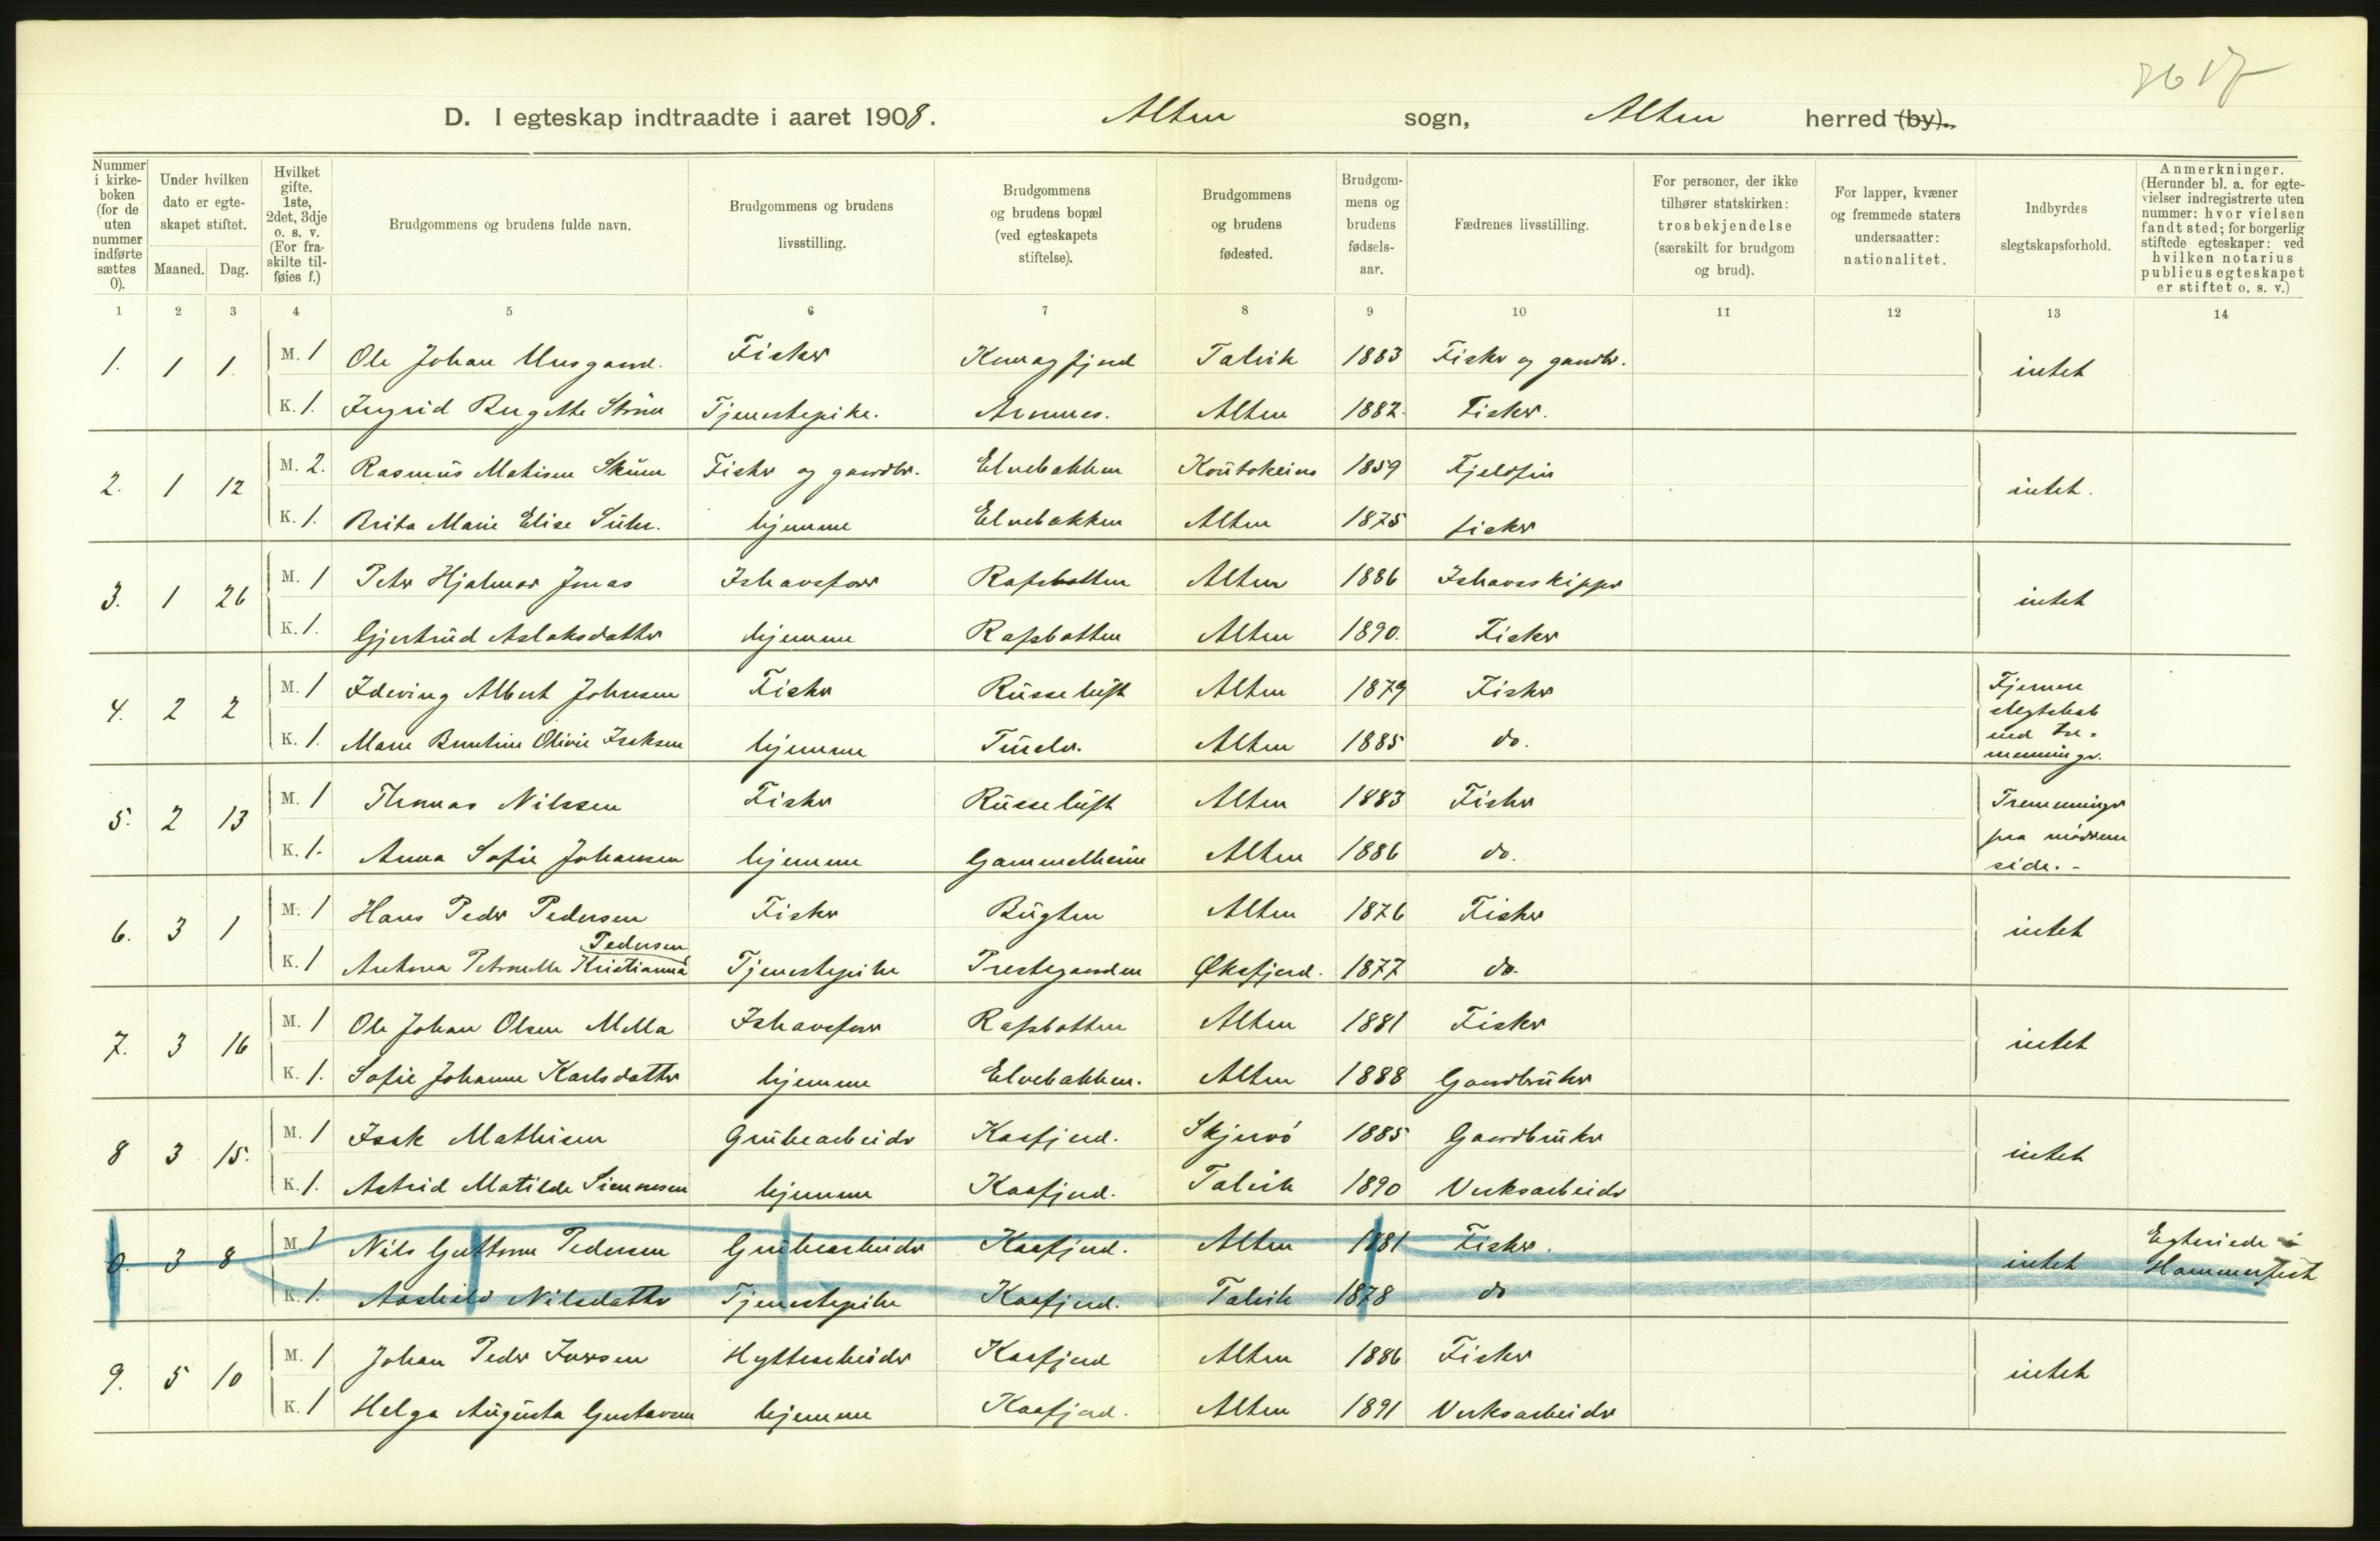 D. I egteskap indtraadte i aaret 1908. Alten sogn, Alten herred (by).
Nummer i kirkeboken (for de uten nummer indførte sættes 0).
Under hvilken dato er egteskapet stiftet.
Maaned. Dag.
Hvilket gifte. 1ste, 2det, 3dje o. s. v. (For fraskilte tilføies f.)
Brudgommens og brudens fulde navn.
Brudgommens og brudens livsstilling.
Brudgommens og brudens bopæl (ved egteskapets stiftelse).
Brudgommens og brudens fødested.
Brudgommens og brudens fødselsaar.
Fædrenes livsstilling.
For personer, der ikke tilhører statskirken: trosbekjendelse (særskilt for brudgom og brud).
For lapper, kvæner og fremmede staters undersaatter: nationalitet.
Indbyrdes slegtskapsforhold.
Anmerkninger. (Herunder bl. a. for egtevielser indregistrerte uten nummer: hvor vielsen fandt sted; for borgerlig stiftede egteskaper: ved hvilken notarius publicus egteskapet er stiftet o. s. v.)
1 2 3 4 5 6 7 8 9 10 11 12 13 14
1. 1 1. M. 1 Ole Johan Fisker Talvik 1883 Fisker og gaardbr. intet
K. 1. Ingrid Bergette Strøm Tjenestepike. Alten 1882. Fisker.
2. 1 12 M. 2. Rasmus Mathisen Skum Fisker og gaardbr. Elvebakken Koutokeino 1859 Fjeldfin intet.
K. 1. Brita Marie Elise hjemme Elvebakken Alten 1875 fisker
3. 1 26 M. 1 Peter Hjalmar Jonas Ishavsfarer Rafsbotten Alten 1886 Ishavsskipper intet
K. 1. Gjertrud Aslaksdatter hjemme Rafsbotten Alten 1890. Fisker
4. 2 2 M. 1 Edeving Albert Johnsen Fisker Russeluft Alten 1879 Fisker Fjernere slegtskab end tremenninger.
K. 1. Marie Olivie Isaksen hjemme Alten 1885 do.
5. 2 13 M. 1 Thomas Nilssen Fisker Russeluft Alten 1883 Fisker Tremenninger paa mødrene side. -
K. 1. Anna Sofie Johansen hjemme Gammelheim Alten 1886 do.
6. 3 1 M. 1 Hans Peder Pedersen Fisker Bugten Alten 1876 Fisker intet
Pedersen
K. 1 Antona Petronelle Kristianna Tjenestepike Prestegaarden Øksfjord. 1877 do.
7. 3 16 M. 1 Ole Johan Olsen Mella Ishavsfarer Rafsbotten Alten 1881 Fisker intet
K. 1. Sofie Johanne Karlsdatter hjemme Elvebakken. Alten 1888 Gaardbruker
8 3 15. M. 1 Isak Mathisen Grubearbeider Kaafjord. Skjervø 1885 Gaardbruker intet
K. 1. Astrid Matilde Simonsen hjemme Kaafjord. Talvik 1890 Verksarbeider
0. 3 8 M. 1 Nils Guttorm Pedersen Grubearbeider Kaafjord. Alten 1881 Fisker. intet Egteviede i Hammerfest
K. 1. Aashild Nilsdatter Tjenestepike Kaafjord. Talvik 1878 do
9. 5 10 M. 1 Johan Peder Iversen Hyttearbeider Kaafjord Alten 1886 Fisker intet
K. 1 Helga Augusta Gustavsen hjemme Kaafjord. Alten 1891 Verksarbeider